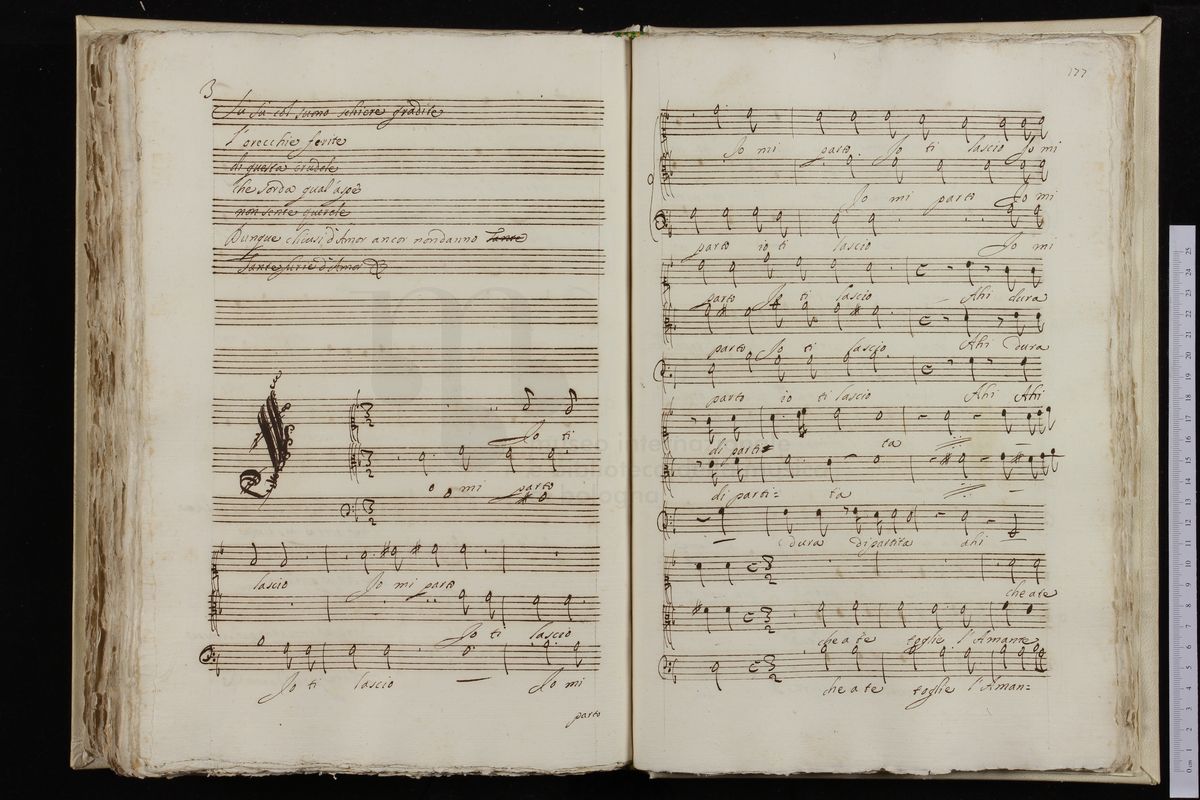 3
Su Su col sumo schiere gradite
l'orecchie ferite
di questa crudele
Che sorda qual aspe
non sente querele
Dunque chiuasi d'Amor ancor nondanno Tante
Tante furie d'Amor
Io ti
mi parto
lascio Io mi parto
Io ti lascio
Io ti lascio Io mi
parto
177
Io mi parto Io ti lascio Io mi
Io mi parto Io mi
parto io ti lascio Io mi
parto Io ti lascio Ahi dura
parto Io ti lascio Ahi dura
parto io ti lascio Ahi Ahi
di parti= ta
di parti= ta
dura dipartita ahi
che a te
che a te toglie l'Amante
che a te toglie l'Aman=
museo internazionale
e biblioteca della musica
bologna
0 cm 1 2 3 4 5 6 7 8 9 10 11 12 13 14 15 16 17 18 19 20 21 22 23 24 25